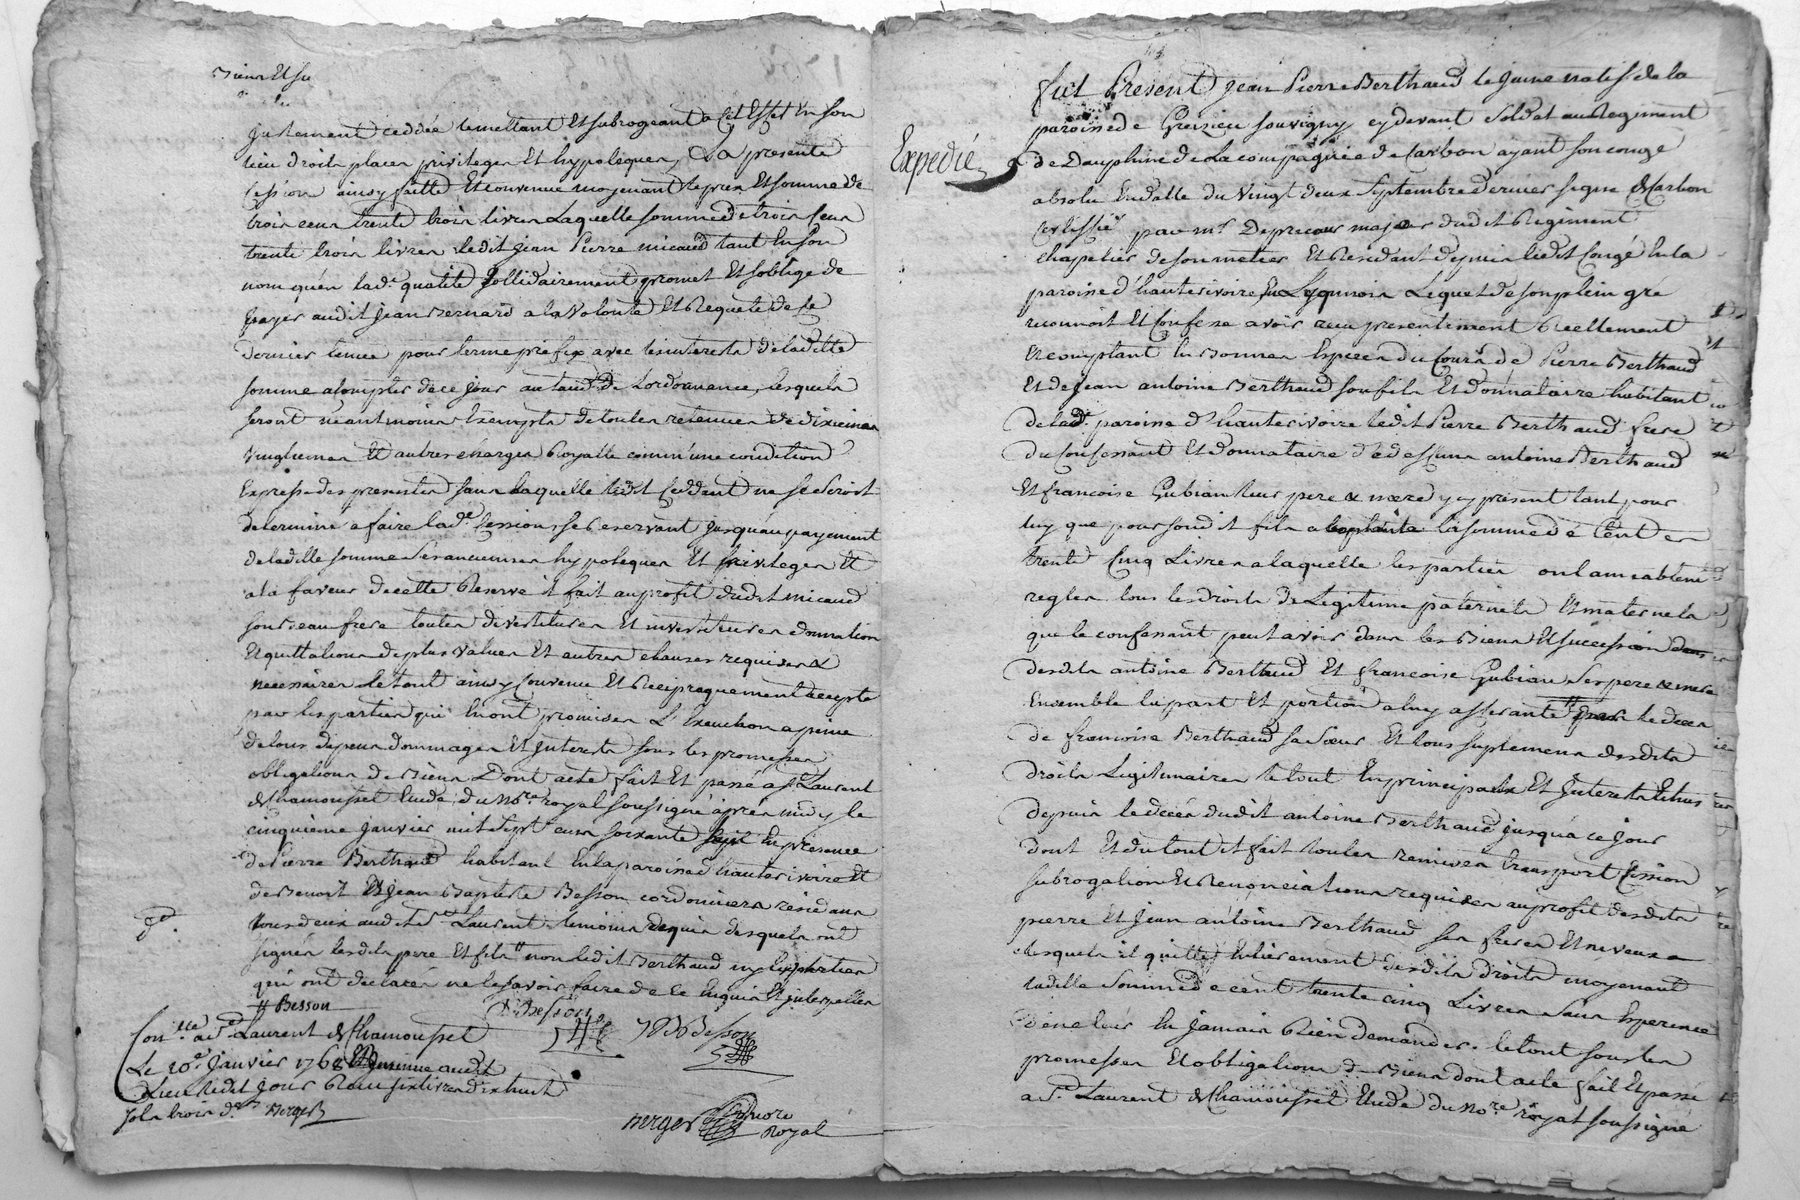 Biens Et su
justement ceddée le mettant Et subrogeant a Cet Effet En son
lieu droits places privileges Et hypoteques, La presente
Cession ainsy faitte Et convenue moyenant le prix Et somme de
trois cens trente trois livres Laquelle somme de trois Cens
trente trois livres ledit jean Pierre micaud tant En son
nom qu'en lad. qualité sollidairement promet Et s'oblige de
payer audit jean Bernard a la Volonté Et Requete de ce
dernier tenue pour terme prefix avec les interets de laditte
somme a compter de ce jour au taud de Lordonnance, lesquels
seront néantmoins Exempts de toutes retenues de dixiemes
vingtiemes Et autres charges Royalle comm'une condition
Expresse des presentes sans laquelle ledit Ceddent ne se seroit
determiné a faire lad.e Cession, se Reservant jusqu'au payement
de laditte somme ses anciennes hypoteques Et privileges Et
a la faveur de cette Reserve il fait au profit dudit micaud
son beau frere toutes devestitures Et investitures donnation
Et quittations de plus values Et autres clauses requises &
necessaires le tout ainsy Convenu Et Reciproquement accepté
par les parties qui En ont promis L'Execution a peine
de tous depens dommages Et jnterets sous les promesses
obligations de Biens Dont acte fait Et passé a St Laurent
de Chamousset Etude du No.re royal soussigné après midy le
cinquieme janvier mil sept cens soixante huit En presence
de Pierre Berthaud habitant En la paroisse d'hauterivoire Et
de Benoit Et jean Baptiste Besson cordonniers residans
tous deux audit St Laurent, temoins requis desquels ont
signés lesdits pere Et fils non ledit Berthaud ny les parties
qui ont declarés ne le savoir faire de ce Enquis Et jnterpellés
Besson
B. Besson
JB Besson
Con.lle a St Laurent de Chamousset
Le 10.e Janvier 1768
Lieu ledit jour Recu six livres dix huit
sols trois d.rs Berger
Berger Notre
Royal
Expedié
fut Present jean Pierre Berthaud le jeune natif de la
paroisse de Grezieu souvigny cy devant Soldat au Regiment
de Dauphiné de La compagnie de Carbon ayant son congé
absolu En datte du Vingt deux Septembre dernier signé de Carbon
Certiffié par mr major dudit Regiment
chapelier de son metier Et Residant depuis ledit Congé En la
paroisse d'hauterivoire En Lyonnois Lequel de son plein gre
reconnoit Et Confesse avoir reçu presentement Reellement
Et comptant En Bonnes Especes du Cours de Pierre Berthaud
Et de jean antoine Berthaud son fils Et donnataire habitant
de lad. paroisse d'hauterivoire ledit Pierre Berthaud frere
du Confessant Et donnataire de deffunt antoine Berthaud
Et francoise Gubian leur pere & mere y cy present tant pour
luy que pour sondit fils la somme de Cent
trente Cinq Livres a laquelle les parties ont amiablement
reglés tous les droits de Legitime paternels Et maternels
que le confessant peut avoir dans les Biens Et succession
desdits antoine Berthaud Et francoise Gubian Ses pere & mere
Ensemble la part Et portion a luy afferante par le decés
de francoise Berthaud sa Soeur Et tous suplemens desdits
droits Legitimaires le tout En principaux Et Interets Echus
depuis le decés dudit antoine Berthaud jusqu'a ce jour
dont Et du tout il fait toutes remises transport Cession
subrogation Et Renonciations requises au profit desdits
pierre Et jean antoine Berthaud ses freres Et neveux
desquels il quitte Entierement desdits droits moyenant
laditte Somme de cent trente cinq Livres Sans Esperence
d'en leur En jamais Rien demander. le tout sous les
promesses Et obligations de Biens dont acte fait Et passé
a St Laurent de Chamousset Etude du No.re royal soussigné